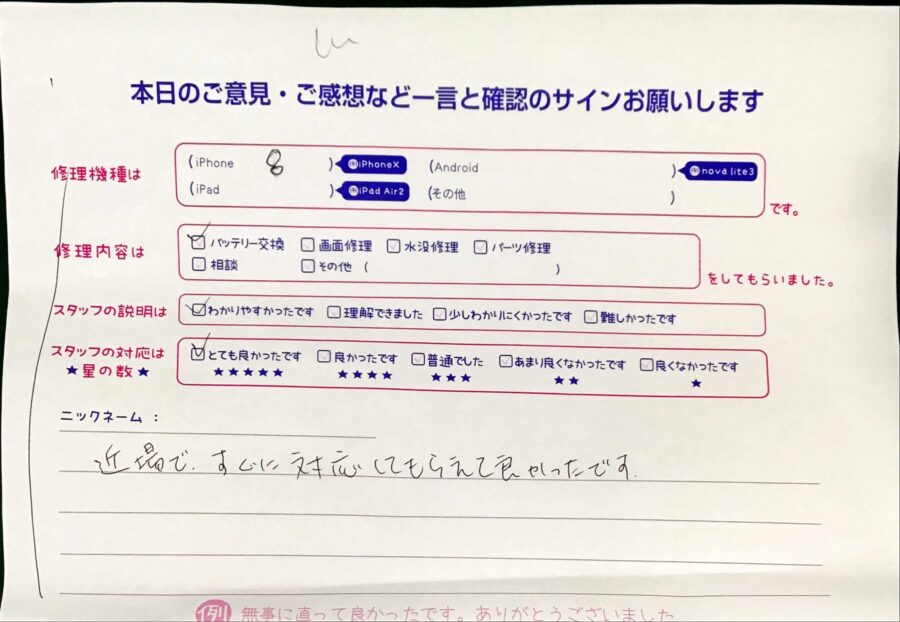 本日のご意見・ご感想など一言と確認のサインお願いします
修理機種は (iPhone 8 ) 例iPhoneX (Android ) 例nova lite3
(iPad ) 例iPad Air2 (その他 ) です。
修理内容は ☑バッテリー交換 □画面修理 □水没修理 □パーツ修理
□相談 □その他 ( ) をしてもらいました。
スタッフの説明は ☑わかりやすかったです □理解できました □少しわかりにくかったです □難しかったです
スタッフの対応は ☑とても良かったです □良かったです □普通でした □あまり良くなかったです □良くなかったです
★星の数★ ★★★★★ ★★★★ ★★★ ★★ ★
ニックネーム :
近場で、すぐに対応してもらえて良かったです.
例 無事に直って良かったです。ありがとうございました